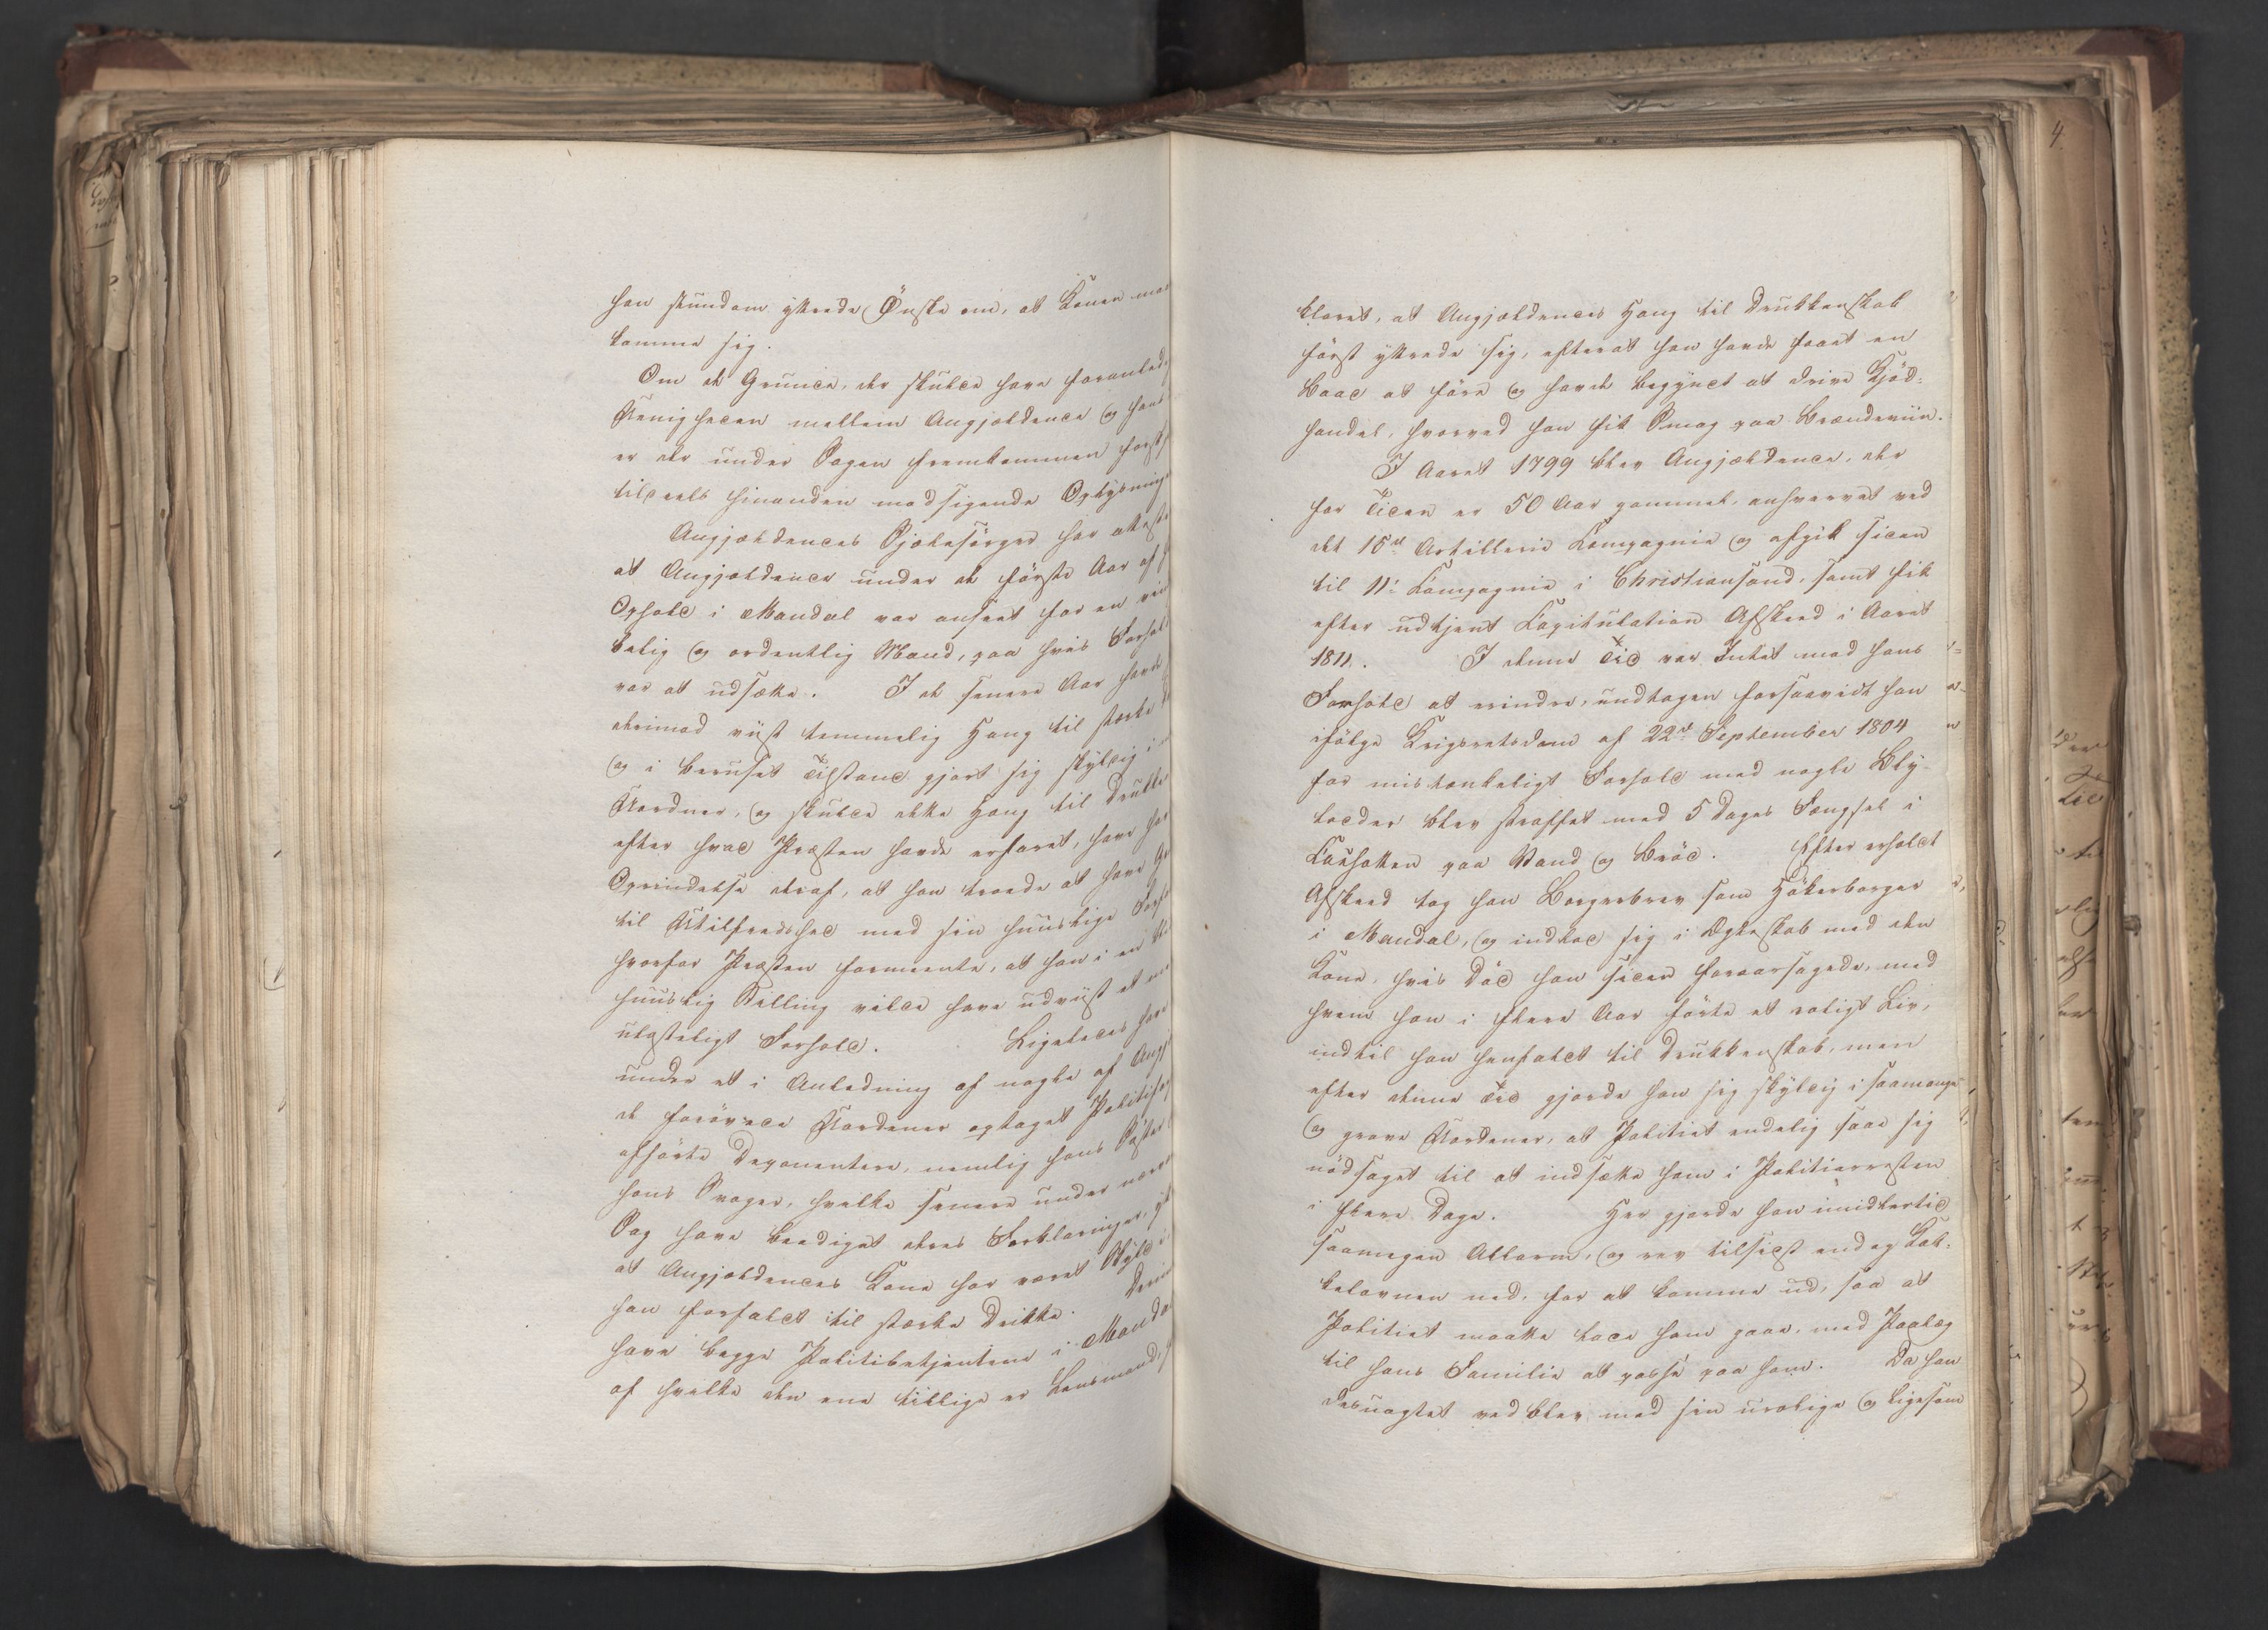 han stundom yttrede Ønske om, at Konen maa
komme sig.
Om de Grunde, der skulde have foranled
Uenigheden mellem Angjældende og hans
er der under Sagen fremkommen forsk
tildeels hinanden modsigende Oplysninge
Angjældendes Sjælesørger har atteste
at Angjældende under de første Aar af
Ophold i Mandal var anseet for en
delig og ordentlig Mand, paa hvis Forhol
var at udsætte. I de senere Aar havde
derimod viist temmelig Hang til stærke
og i beruset Tilstand gjort sig skyldig i
Uordner, og skulde dette Hang til Drukke
efter hvad Præsten havde erfaret, have
Oprindelse deraf, at han troede at have Gr
til Utilfredshed med sin huuslige Forf
hvorfor Præsten formeente, at han i en
huuslig Stilling vilde have udviist et
ulasteligt Forhold. Ligeledes have
under et i Anledning af nogle af Angj
de forøvede Uordener optaget Politifor
afhørte Deponentere, nemlig hans Søster
hans Svoger, hvilke senere under nærv
Sag have beediget deres Forklaringer,
at Angjældendes Kone har været Skyld i
han forfaldt til stærke Drikke. Derim
have begge Politibetjentene i Manda
af hvilke den ene tillige er Lensmand,
klaret, at Angjældendes Hang til Drukkenskab
først yttrede sig, efterat han havde faaet en
Baad at føre og havde begyndt at drive Kjød-
handel, hvorved han fik Smag paa Brændeviin.
I Aaret 1799 blev Angjældende, der
for Tiden er 50 Aar gammel, anhvervet ved
det 15de Artillerie Kompagnie og afgik siden
til 11te Kompagnie i Christiansand, samt fik
efter udtjent Kapitulation Afskeed i Aaret
1811. I denne Tid var Intet mod hans
Forhold at erindre, undtagen forsaavidt han
ifølge Krigsretsdom af 22de September 1804
for mistænkeligt Forhold med nogle Bly-
lodder blev straffet med 5 Dages Fængsel i
Kashotten paa Vand og Brød. Efter erholdt
Afskeed tog han Borgerbrev som Høkerborger
i Mandal, og indlod sig i Ægteskab med den
Kone, hvis Død han siden foraarsagede, med
hvem han i flere Aar førte et roligt Liv,
indtil han henfaldt til Drukkenskab, men
efter denne Tid gjorde han sig skyldig i saamange
og grove Uordener, at Politiet endelig saae sig
nødsaget til at indsætte ham i Politiarresten
i flere Dage. Her gjorde han imidlertid
saamegen Allarm, og rev tilsidst endog Kak-
kelovnen ned, for at komme ud, saa at
Politiet maatte lade ham gaae, med Paalæg
til hans Familie at passe paa ham. Da han
desuagtet ved blev med sin urolige og ligesom
4.